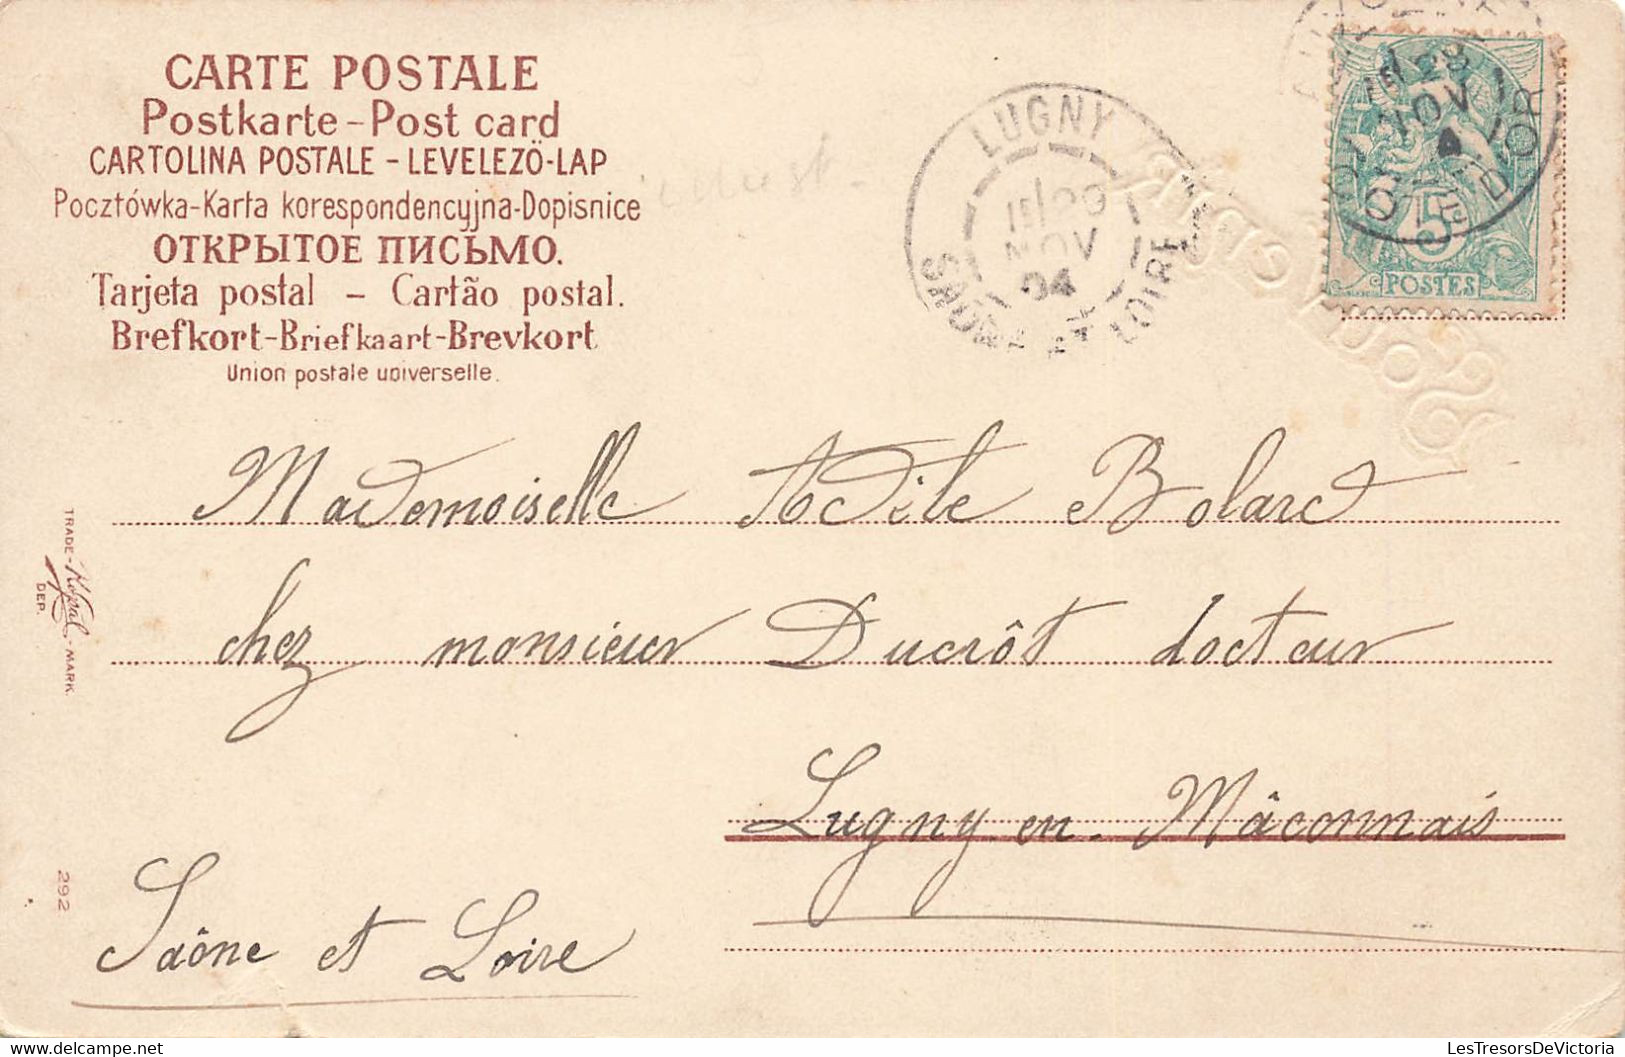 CARTE POSTALE
Postkarte-Post card
CARTOLINA POSTALE - LEVELEZÖ-LAP
Pocztówka-Karta korespondencyjna-Dopisnice
ОТКРЫТОЕ ПИСЬМО.
Tarjeta postal - Cartão postal.
Brefkort-Briefkaart-Brevkort
Union postale universelle.
LUGNY
29
NOV
04
SAONE ET LOIRE
28
NOV
4
CÔTE D'OR
5
POSTES
Mademoiselle Adèle Bolard
chez monsieur Ducrôt docteur
Lugny-en-Mâconnais
Saône et Loire
TRADE-Kopal-MARK.
DEP.
292
LesTresorsDeVictoria